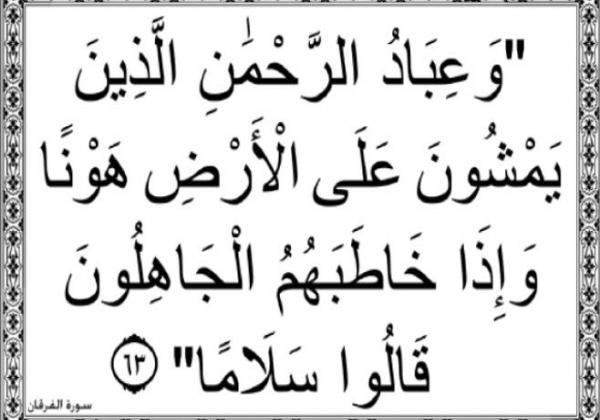 "وَعِبَادُ الرَّحْمَٰنِ الَّذِينَ
يَمْشُونَ عَلَى الْأَرْضِ هَوْنًا
وَإِذَا خَاطَبَهُمُ الْجَاهِلُونَ
قَالُوا سَلَامًا" ٦٣
سورة الفرقان